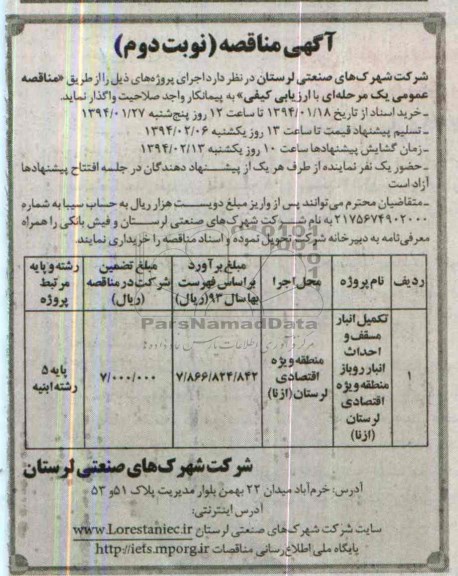 آگهی مناقصه (نوبت دوم)
شرکت شهرک‌های صنعتی لرستان در نظر دارد اجرای پروژه‌های ذیل را از طریق «مناقصه
عمومی یک مرحله‌ای با ارزیابی کیفی» به پیمانکار واجد صلاحیت واگذار نماید.
ـ خرید اسناد از تاریخ ۱۳۹۴/۰۱/۱۸ تا ساعت ۱۲ روز پنج‌شنبه ۱۳۹۴/۰۱/۲۷
ـ تسلیم پیشنهاد قیمت تا ساعت ۱۳ روز یکشنبه ۱۳۹۴/۰۲/۰۶
ـ زمان گشایش پیشنهادها ساعت ۱۰ روز یکشنبه ۱۳۹۴/۰۲/۱۳
ـ حضور یک نفر نماینده از طرف هر یک از پیشنهاد دهندگان در جلسه افتتاح پیشنهادها
آزاد است
ـ متقاضیان محترم می‌توانند پس از واریز مبلغ دویست هزار ریال به حساب سیبا به شماره
۲۱۷۵۶۷۴۹۰۲۰۰۰ به نام شرکت شهرک‌های صنعتی لرستان و فیش بانکی را همراه
معرفی‌نامه به دبیرخانه شرکت تحویل نموده و اسناد مناقصه را خریداری نمایند.
ردیف
نام پروژه
محل اجرا
مبلغ برآورد
براساس فهرست
بها سال ۹۳(ریال)
مبلغ تضمین
شرکت در مناقصه
(ریال)
رشته و پایه
مرتبط
پروژه
۱
تکمیل انبار
مسقف و
احداث
انبار روباز
منطقه ویژه
اقتصادی
لرستان
(ازنا)
منطقه ویژه
اقتصادی
لرستان(ازنا)
۷/۸۶۶/۸۲۴/۸۴۲
۷/۰۰۰/۰۰۰
پایه ۵
رشته ابنیه
ParsNamadData
شرکت شهرک‌های صنعتی لرستان
آدرس: خرم‌آباد میدان ۲۲ بهمن بلوار مدیریت پلاک ۵۱ و ۵۳
آدرس اینترنتی:
سایت شرکت شهرک‌های صنعتی لرستان www.Lorestaniec.ir
پایگاه ملی اطلاع‌رسانی مناقصات http://iets.mporg.ir